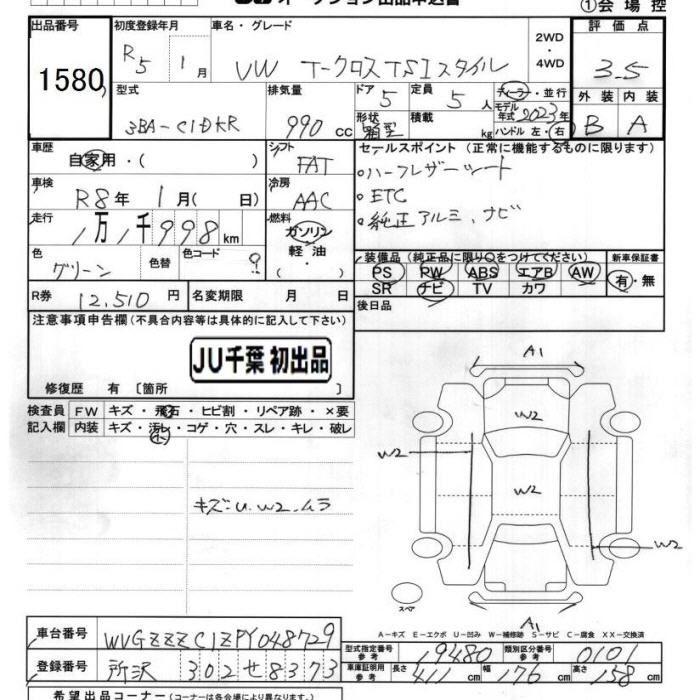 オークション出品申込書
①会場控
出品番号
1580
初度登録年月
R5 1月
車名・グレード
VW T-クロス TSI スタイル
2WD
・
4WD
評価点
3.5
型式
3BA-C1DKR
排気量
990 cc
ドア 5
定員 5人
形状 箱型
積載 kg
ディーラー・並行
モデル年式 2023年
ハンドル 左・右
外装 内装
B A
車歴
自家用・( )
シフト
FAT
セールスポイント (正常に機能するものに限ります)
・ハーフレザーシート
・ETC
・純正アルミ、ナビ
車検
R8年 1月( 日)
冷房
AAC
走行
1万1千998km
燃料
ガソリン
軽油
・( )
色
グリーン
色替
色コード
9
装備品(純正品に限り○をつけてください)
PS PW ABS エアB AW
SR ナビ TV カワ
新車保証書
有・無
R券 12,510円
名変期限 月 日
後日品
注意事項申告欄(不具合内容等は具体的に記入して下さい)
JU千葉 初出品
修復歴 有 〔箇所 〕
検査員
記入欄
FW キズ・飛石・ヒビ割・リペア跡・×要
内装 キズ・汚レ・コゲ・穴・スレ・キレ・破レ
小
キズ=U.W2.ムラ
A1
W2
W2
W2
W2
スペア
A1
A－キズ E－エクボ U－凹み W－補修跡 S－サビ C－腐食 XX－交換済
車台番号
WVGZZZC1ZPY048729
登録番号
所沢 302 せ 8373
型式指定番号
参考
19480
類別区分番号
参考
0101
車庫証明用
参考
長さ 411cm
幅 176cm
高さ 158cm
希望出品コーナー(コーナーは各会場により異なります。)